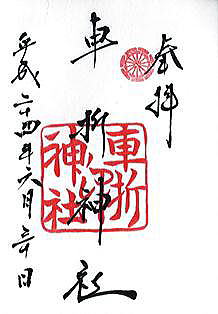 奉拝
車折神社
車折
神社
平成二十四年六月三十日